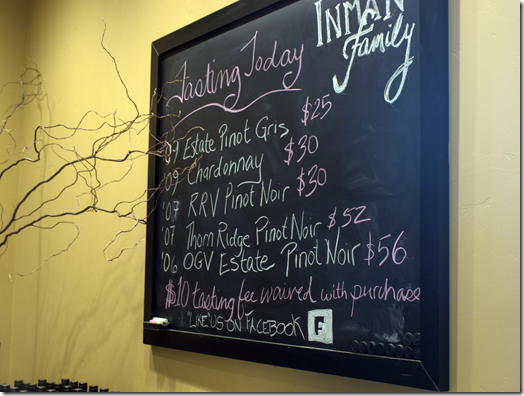 INMAN
Family
Tasting Today
'09 Estate Pinot Gris $25
'09 Chardonnay $30
'07 RRV Pinot Noir $30
'07 Thorn Ridge Pinot Noir $52
'06 OGV Estate Pinot Noir $56
$10 tasting fee waived with purchase
LIKE US ON FACEBOOK F